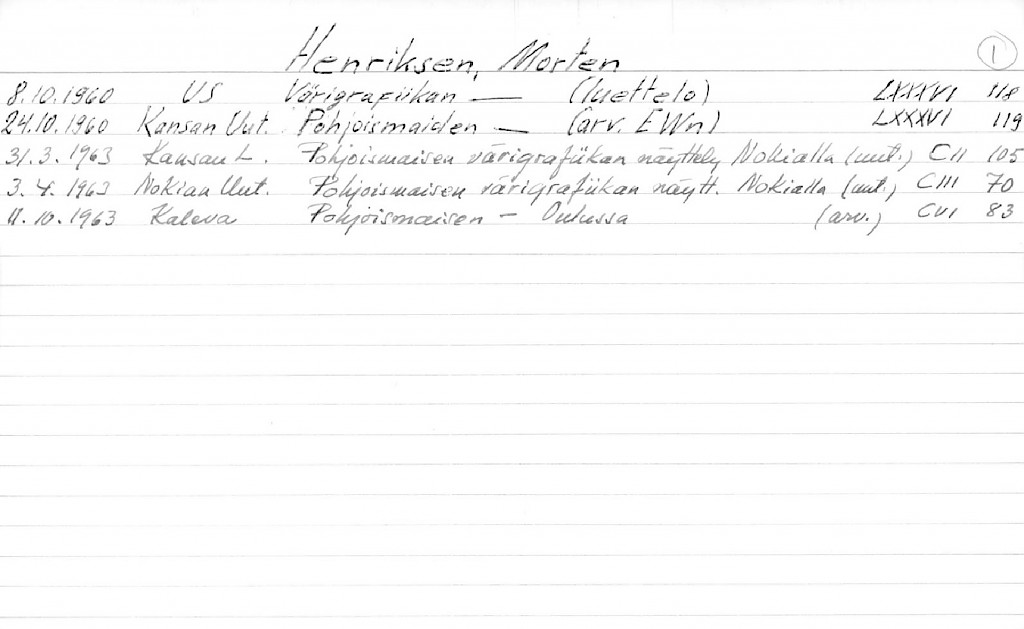 Henriksen, Morten 1
8.10.1960 US Värigrafiikan — (luettelo) LXXXVI 118
24.10.1960 Kansan Uut. Pohjoismaiden — (arv. EWn) LXXXVI 119
31.3.1963 Kansan L. Pohjoismaisen värigrafiikan näyttely Nokialla (uut.) CII 105
3.4.1963 Nokian Uut. Pohjoismaisen värigrafiikan näytt. Nokialla (uut.) CIII 70
11.10.1963 Kaleva Pohjoismaisen – Oulussa (arv.) CVI 83